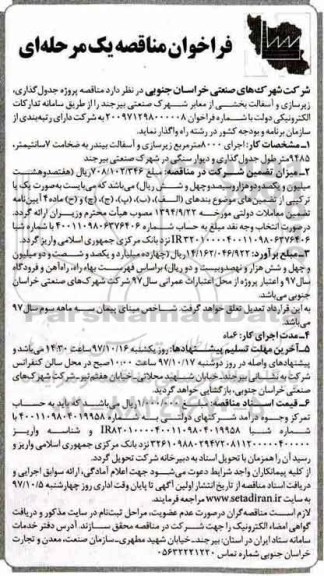 فراخوان مناقصه یک مرحله‌ای
شرکت شهرک‌های صنعتی خراسان جنوبی در نظر دارد مناقصه پروژه جدول‌گذاری،
زیرسازی و آسفالت بخشی از معابر شهرک صنعتی بیرجند را از طریق سامانه تدارکات
الکترونیکی دولت با شماره فراخوان ۲۰۰۹۷۱۲۹۸۰۰۰۰۰۸ به شرکت دارای رتبه‌بندی از
سازمان برنامه و بودجه کشور در رشته راه واگذار نماید.
۱-مشخصات کار: اجرای ۸۰۰۰مترمربع زیرسازی و آسفالت بیندر به ضخامت ۷سانتیمتر،
۹۴۸۵متر طول جدول‌گذاری و دیوار سنگی در شهرک صنعتی بیرجند
۲-میزان تضمین شرکت در مناقصه: مبلغ ۷۰۸/۱۰۲/۳۴۶ریال (هفتصدوهشت
میلیون و یکصدودوهزاروسیصدوچهل و شش ریال) می‌باشد که می‌بایست به صورت یک یا
ترکیبی از تضمین‌های موضوع بندهای (الف)، (ب)، (پ)، (ج)، (چ) و (ح) ماده ۴ آیین‌نامه
تضمین معاملات دولتی مورخه ۱۳۹۴/۹/۲۲ مصوب هیأت محترم وزیران ارائه گردد.
در صورت انتخاب وجه نقد مبلغ به حساب شماره ۴۰۰۱۱۰۹۸۰۶۳۷۶۴۰۶ با شماره شبا
نزد بانک مرکزی جمهوری اسلامی واریز گردد.
۳-مبلغ برآورد: ۱۴/۱۶۲/۰۴۶/۹۲۲ریال (چهارده میلیارد و یکصد و شصت و دو میلیون
و چهل و شش هزار و نهصدوبیست و دو ریال) براساس فهرست بهاء راه، راه‌آهن و فرودگاه
سال ۹۷ و اعتبار پروژه از محل اعتبارات عمرانی سال۹۷ شرکت شهرک‌های صنعتی خراسان
جنوبی می‌باشد.
به این قرارداد تعدیل تعلق خواهد گرفت. شاخص مبنای پیمان سه ماهه سوم سال ۹۷
می‌باشد.
۴-مدت اجرای کار: ۶ماه
۵-آخرین مهلت تسلیم پیشنهادها: روز یکشنبه ۹۷/۱۰/۱۶ ساعت ۱۴:۳۰ می‌باشد و
پیشنهادهای واصله در روز دوشنبه ۹۷/۱۰/۱۷ ساعت ۱۰:۰۰صبح در محل سالن کنفرانس
شرکت به نشانی بیرجند، خیابان شهید محلاتی، خیابان هفتم‌تیر-شرکت شهرک‌های
صنعتی خراسان جنوبی، بازگشایی خواهد گردید.
۶-قیمت اسناد مناقصه: ۱/۰۰۰/۰۰۰ریال می‌باشد که باید به حساب
تمرکز وجوه درآمد شرکتهای دولتی به شماره ۴۰۰۱۱۰۹۸۰۴۰۱۹۹۵۸ با
شماره شبا و شناسه واریز
نزد بانک مرکزی جمهوری اسلامی واریز و
رسید آن را همزمان با تحویل اسناد به دبیرخانه شرکت تحویل گردد.
از کلیه پیمانکاران واجد شرایط دعوت می‌شود جهت اعلام آمادگی، ارائه سوابق اجرایی و
دریافت اسناد مناقصه از تاریخ انتشار اولین آگهی تا پایان وقت اداری روز چهارشنبه ۹۷/۱۰/۵
به سایت www.setadiran.ir مراجعه فرمایند.
لازم است مناقصه‌گران درصورت عدم عضویت، مراحل ثبت‌نام در سایت مذکور و دریافت
گواهی امضاء الکترونیک را جهت شرکت در مناقصه محقق سازند. آدرس دفتر خدمات
سامانه ستاد ایران در استان: بیرجند-خیابان شهید مطهری-سازمان صنعت، معدن و تجارت
خراسان جنوبی شماره تماس ۰۵۶۳۲۲۲۱۲۲۰